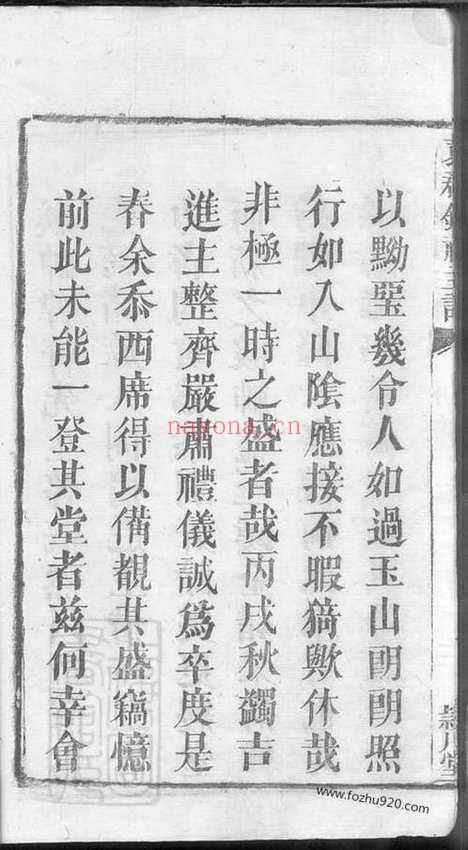 以黝堊幾令人如過玉山朗朗照
行如入山陰應接不暇猗歟休哉
非極一時之盛者哉丙戌秋蠲吉
進主整齊嚴肅禮儀誠爲卒度是
春余忝西席得以備覩其盛竊憶
前此未能一登其堂者兹何幸會
nayona.cn
www.fozhu920.com